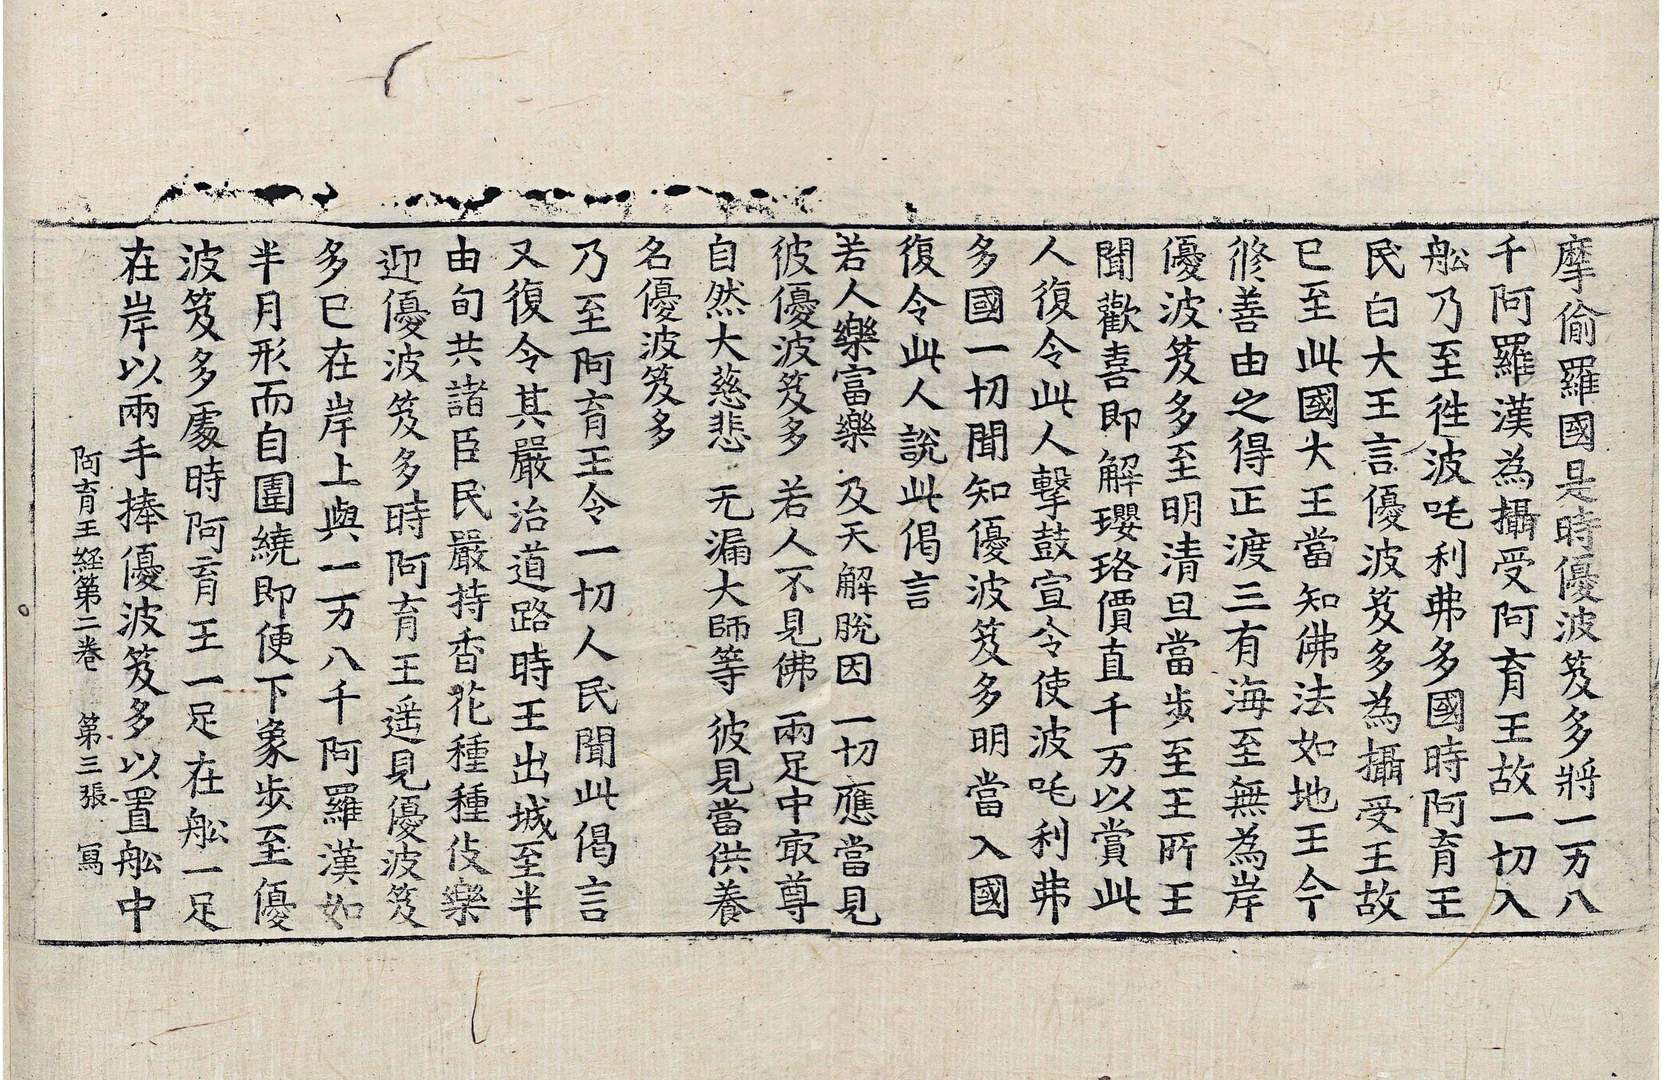 摩偷羅國是時優波笈多將一万八
千阿羅漢為攝受阿育王故一切入
舩乃至徃波吒利弗多國時阿育王
民白大王言優波笈多為攝受王故
已至此國大王當知佛法如地王今
修善由之得正渡三有海至無為岸
優波笈多至明清旦當步至王所王
聞歡喜即解瓔珞價直千万以賞此
人復令此人擊鼓宣令使波吒利弗
多國一切聞知優波笈多明當入國
復令此人說此偈言
若人樂富樂 及天解脫因 一切應當見
彼優波笈多 若人不見佛 兩足中㝡尊
自然大慈悲 无漏大師等 彼見當供養
名優波笈多
乃至阿育王令一切人民聞此偈言
又復令其嚴治道路時王出城至半
由旬共諸臣民嚴持香花種種伎樂
迎優波笈多時阿育王遥見優波笈
多已在岸上與一万八千阿羅漢如
半月形而自圍繞即便下象步至優
波笈多處時阿育王一足在舩一足
在岸以兩手捧優波笈多以置舩中
阿育王経第二卷 第三張 寫